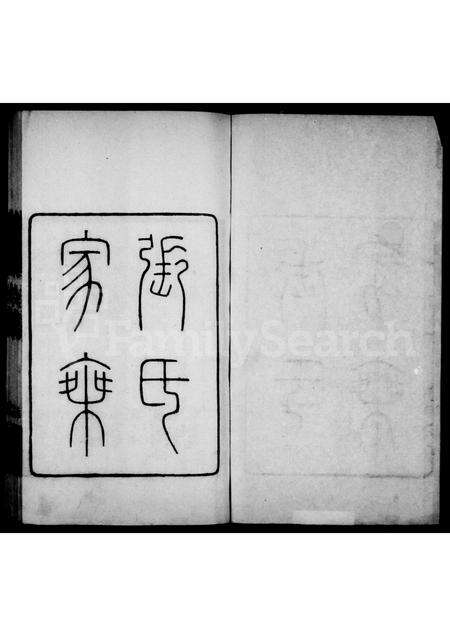 氏
家乘
FamilySearch